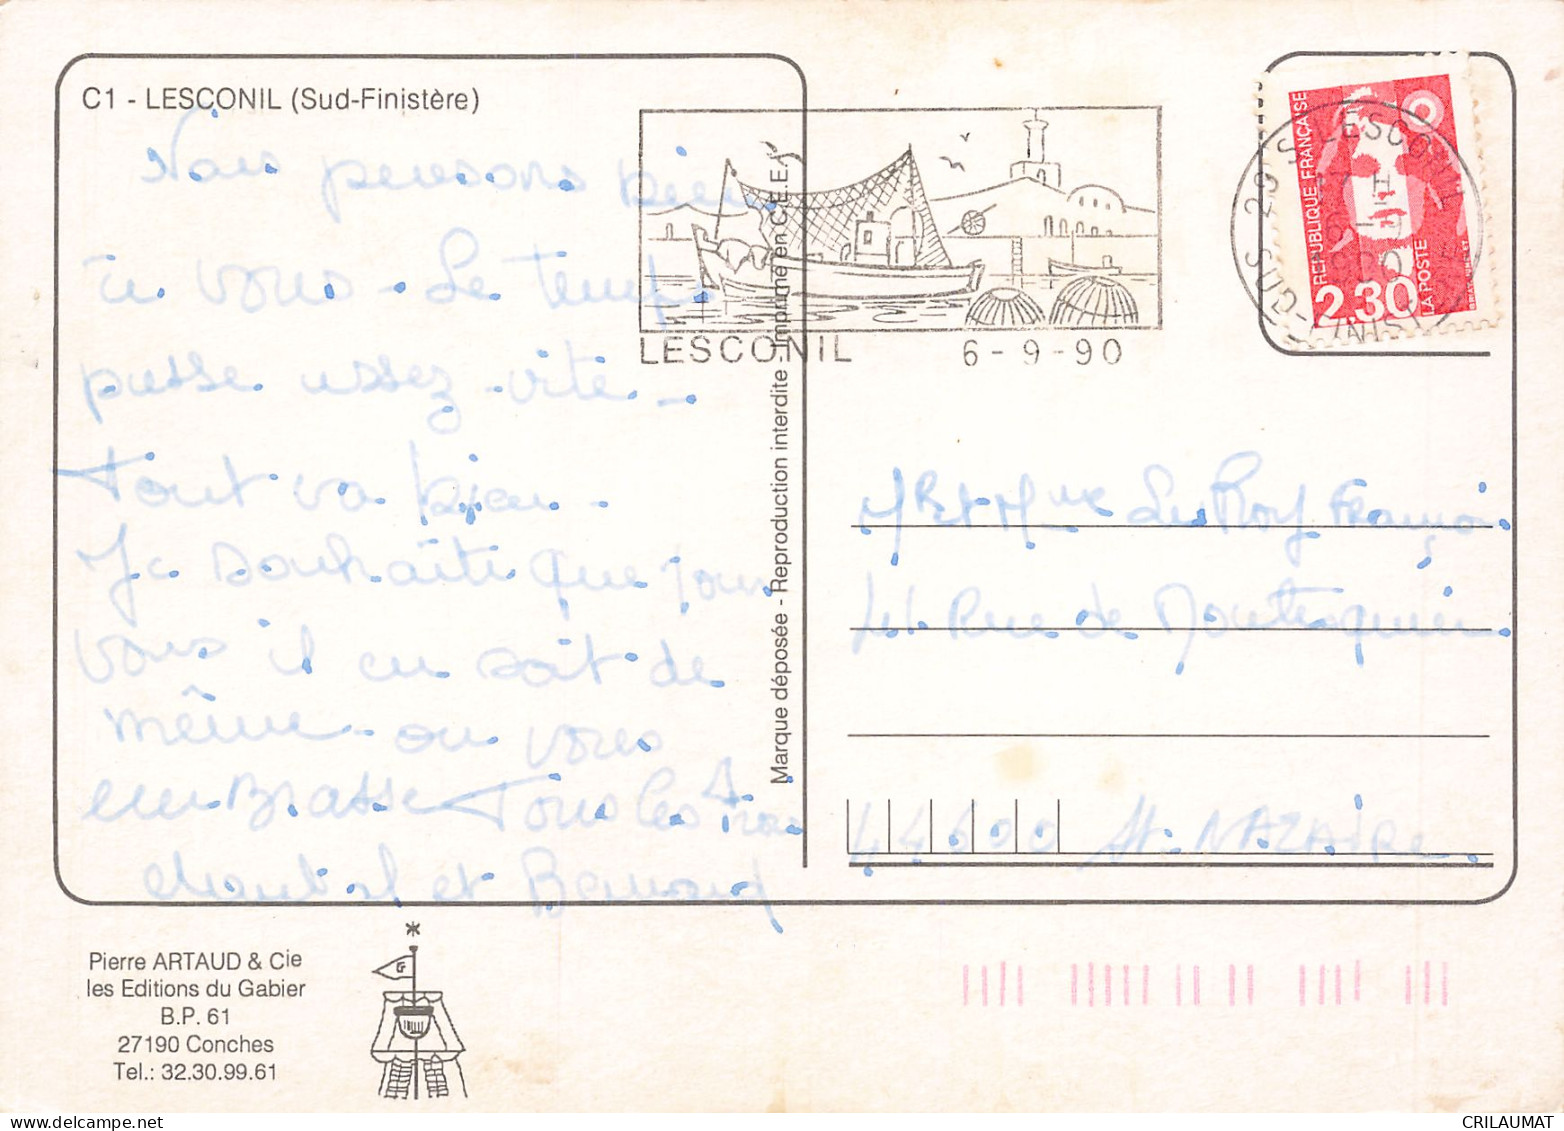 C1 - LESCONIL (Sud-Finistère)
Nous pensons bien
à vous. Le temps
passe assez vite.
Tout va bien.
Je souhaite que pour
vous il en soit de
même. on vous
embrasse Tous les Trois
chantal et Bernard
Marque déposée - Reproduction interdite - Imprimé en C.E.E.
LESCONIL 6-9-90
REPUBLIQUE FRANÇAISE
2.30
LA POSTE
29 S LESCONIL
Mr et Mme Le Roy François
44 Rue de
44600 St. NAZAIRE
Pierre ARTAUD & Cie
les Editions du Gabier
B.P. 61
27190 Conches
Tel.: 32.30.99.61
CRILAUMAT